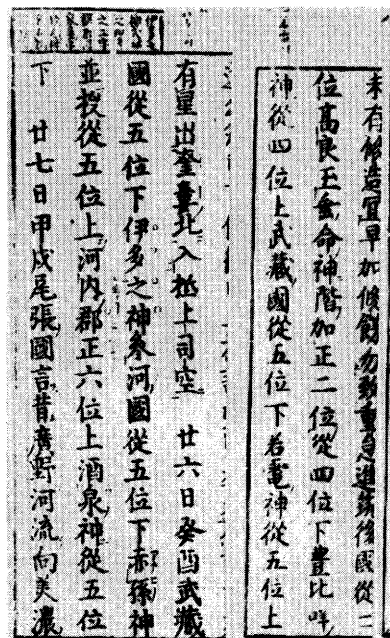 未有修造宜早加修餝勿致重怠筑後國從二
位高良玉垂命神階加正二位從四位下豊比咩
神從四位上武藏國從五位下若電神從五位上
有星出奎壘北入極上司空 廿六日癸酉武藏
國從五位下伊多之神參河國從五位下赤孫神
並授從五位上河内郡正六位上酒泉神從五位
下 廿七日甲戌尾張國言昔廣野河流向美濃